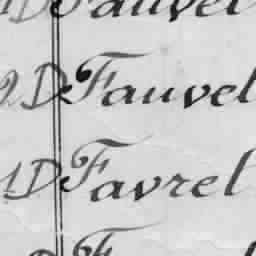 1D Fauvel
2D Fauvel
1D Favrel